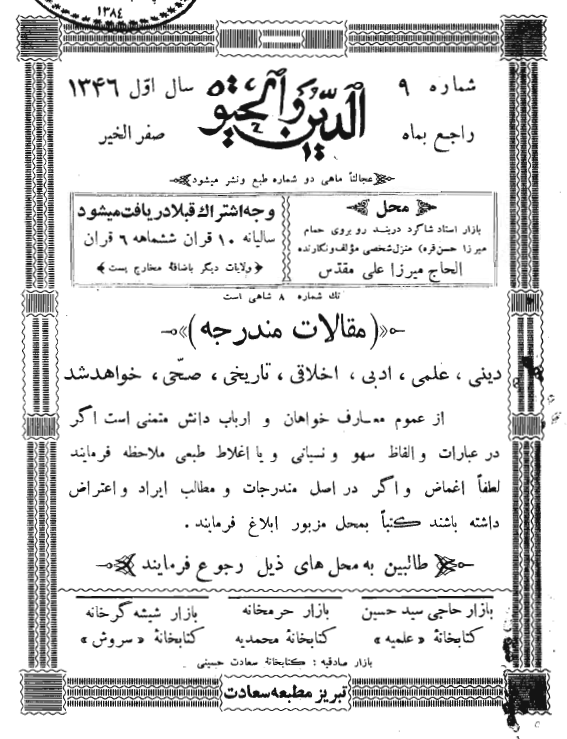 ۱۳۸۴
شماره ۹
الدّين والحيوة
سال اوّل ۱۳۴۶
راجع بماه
صفر الخير
عجالتاً ماهی دو شماره طبع ونشر میشود
محل
بازار استاد شاگرد دربند رو بروی حمام
میرزا حسن قره) منزل شخصی مؤلف ونگارنده
الحاج میرزا علی مقدّس
وجه اشتراك قبلا دریافت میشود
سالیانه ۱۰ قران ششماهه ۶ قران
ولایات دیگر باضافهٔ مخارج پست
تك شماره ۸ شاهی است
(مقالات مندرجه)
دینی ، علمی ، ادبی ، اخلاقی ، تاریخی ، صحّی ، خواهد شد
از عموم معارف خواهان و ارباب دانش متمنی است اگر
در عبارات و الفاظ سهو و نسیانی و یا اغلاط طبعی ملاحظه فرمایند
لطفاً اغماض و اگر در اصل مندرجات و مطالب ایراد و اعتراض
داشته باشند كتباً بمحل مزبور ابلاغ فرمایند .
طالبین به محل های ذیل رجوع فرمایند
بازار حاجی سید حسین
بازار حرمخانه
بازار شیشه گرخانه
کتابخانهٔ « علمیه »
کتابخانهٔ محمدیه
کتابخانهٔ « سروش »
بازار صادقیه : کتابخانهٔ سعادت حسینی
تبریز مطبعه سعادت